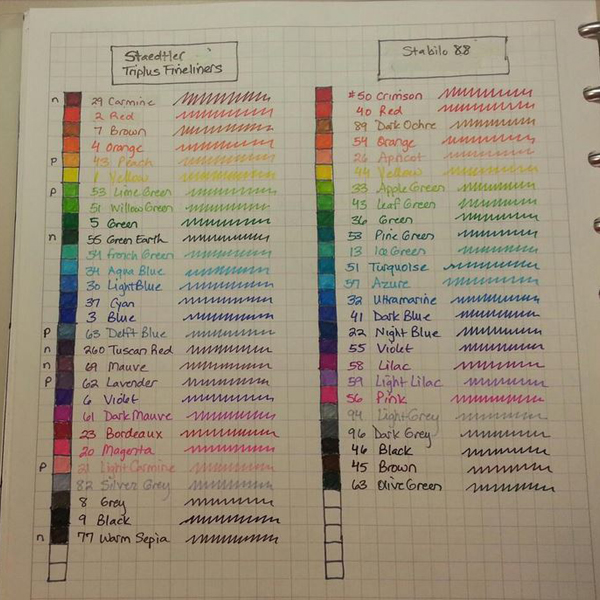 Staedtler
Triplus Fineliners
n 29 Carmine
2 Red
7 Brown
4 Orange
p 43 Peach
1 Yellow
p 53 Lime Green
51 Willow Green
5 Green
n 55 Green Earth
54 French Green
34 Aqua Blue
30 Light Blue
37 Cyan
3 Blue
p 63 Delft Blue
n 260 Tuscan Red
n 69 Mauve
p 62 Lavender
6 Violet
61 Dark Mauve
23 Bordeaux
20 Magenta
p 21 Light Carmine
82 Silver Grey
8 Grey
9 Black
n 77 Warm Sepia
Stabilo 88
#50 Crimson
40 Red
89 Dark Ochre
54 Orange
26 Apricot
44 Yellow
33 Apple Green
43 Leaf Green
36 Green
53 Pine Green
13 Ice Green
51 Turquoise
57 Azure
32 Ultramarine
41 Dark Blue
22 Night Blue
55 Violet
58 Lilac
59 Light Lilac
56 Pink
94 Light Grey
96 Dark Grey
46 Black
45 Brown
63 Olive Green